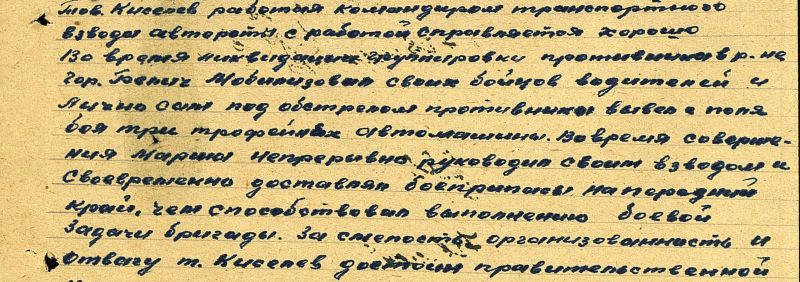 Тов. Киселев работая командиром транспортного
взвода автороты с работой справляется хорошо
Во время ликвидации группировки противника в р-не
гор. Мобилизовал своих бойцов водителей и
Лично сам под обстрелом противника вывел с поля
боя три трофейных автомашины. Во время соверше-
ния Марша непрерывно руководил своим взводом и
своевременно доставлял боеприпасы на передний
край, чем способствовал выполнению боевой
задачи бригады. За смелость, организованность и
отвагу т. Киселев достоин правительственной